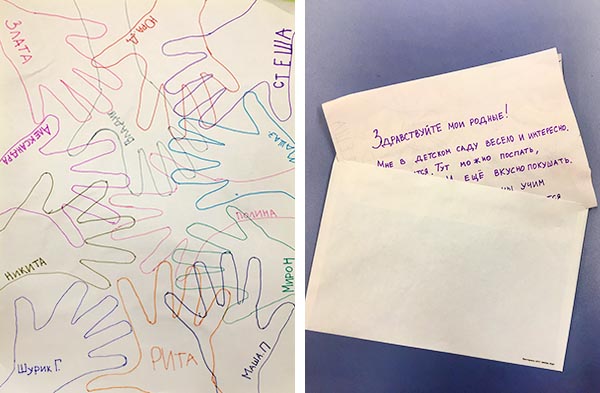 ЗЛАТА
СТЕША
АЛЕКСАНДРА
ВЛАДИК
ПОЛИНА
НИКИТА
МИРОН
Шурик Г.
РИТА
МАША.П
Здравствуйте мои родные!
Мне в детском саду весело и интересно.
Тут можно поспать,
ЕЩЁ ВКУСНО ПОКУШАТЬ.
УЧИМ